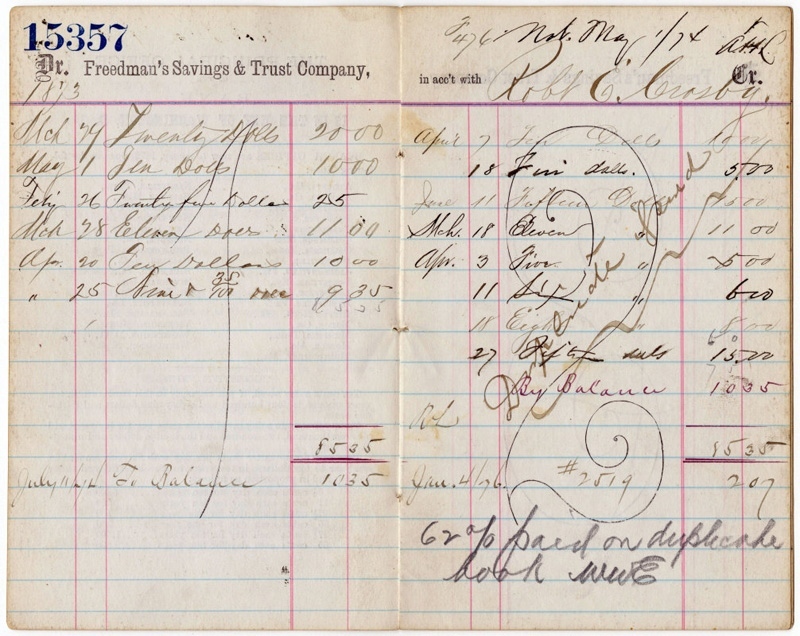 15357
Dr. Freedman's Savings & Trust Company,
1873
Mch 24 Twenty Dolls 20 00
May 1 Ten Docs 10 00
26 Twenty five Dollars 25
Mch 28 Eleven Docs 11 00
Apr. 20 Ten Dollars 10 00
" 25 Nine & 35/100 9 35
85 35
July 11/74 To Balance 10 35
476 Nov. May 1/74
in acc't with Robt E. Crosby. Cr.
April 7 Ten Dolls 10 00
18 Five dolls. 5 00
June 11 Fifteen 15 00
Mch. 18 Eleven " 11 00
Apr. 3 Five " 5 00
11 Six " 6 00
18 Eight " 8 00
27 15.00
By Balance 10 35
85 35
Jan. 4/76. #2519 2 07
Duplicate Issued
62% paid on duplicate
book WWE